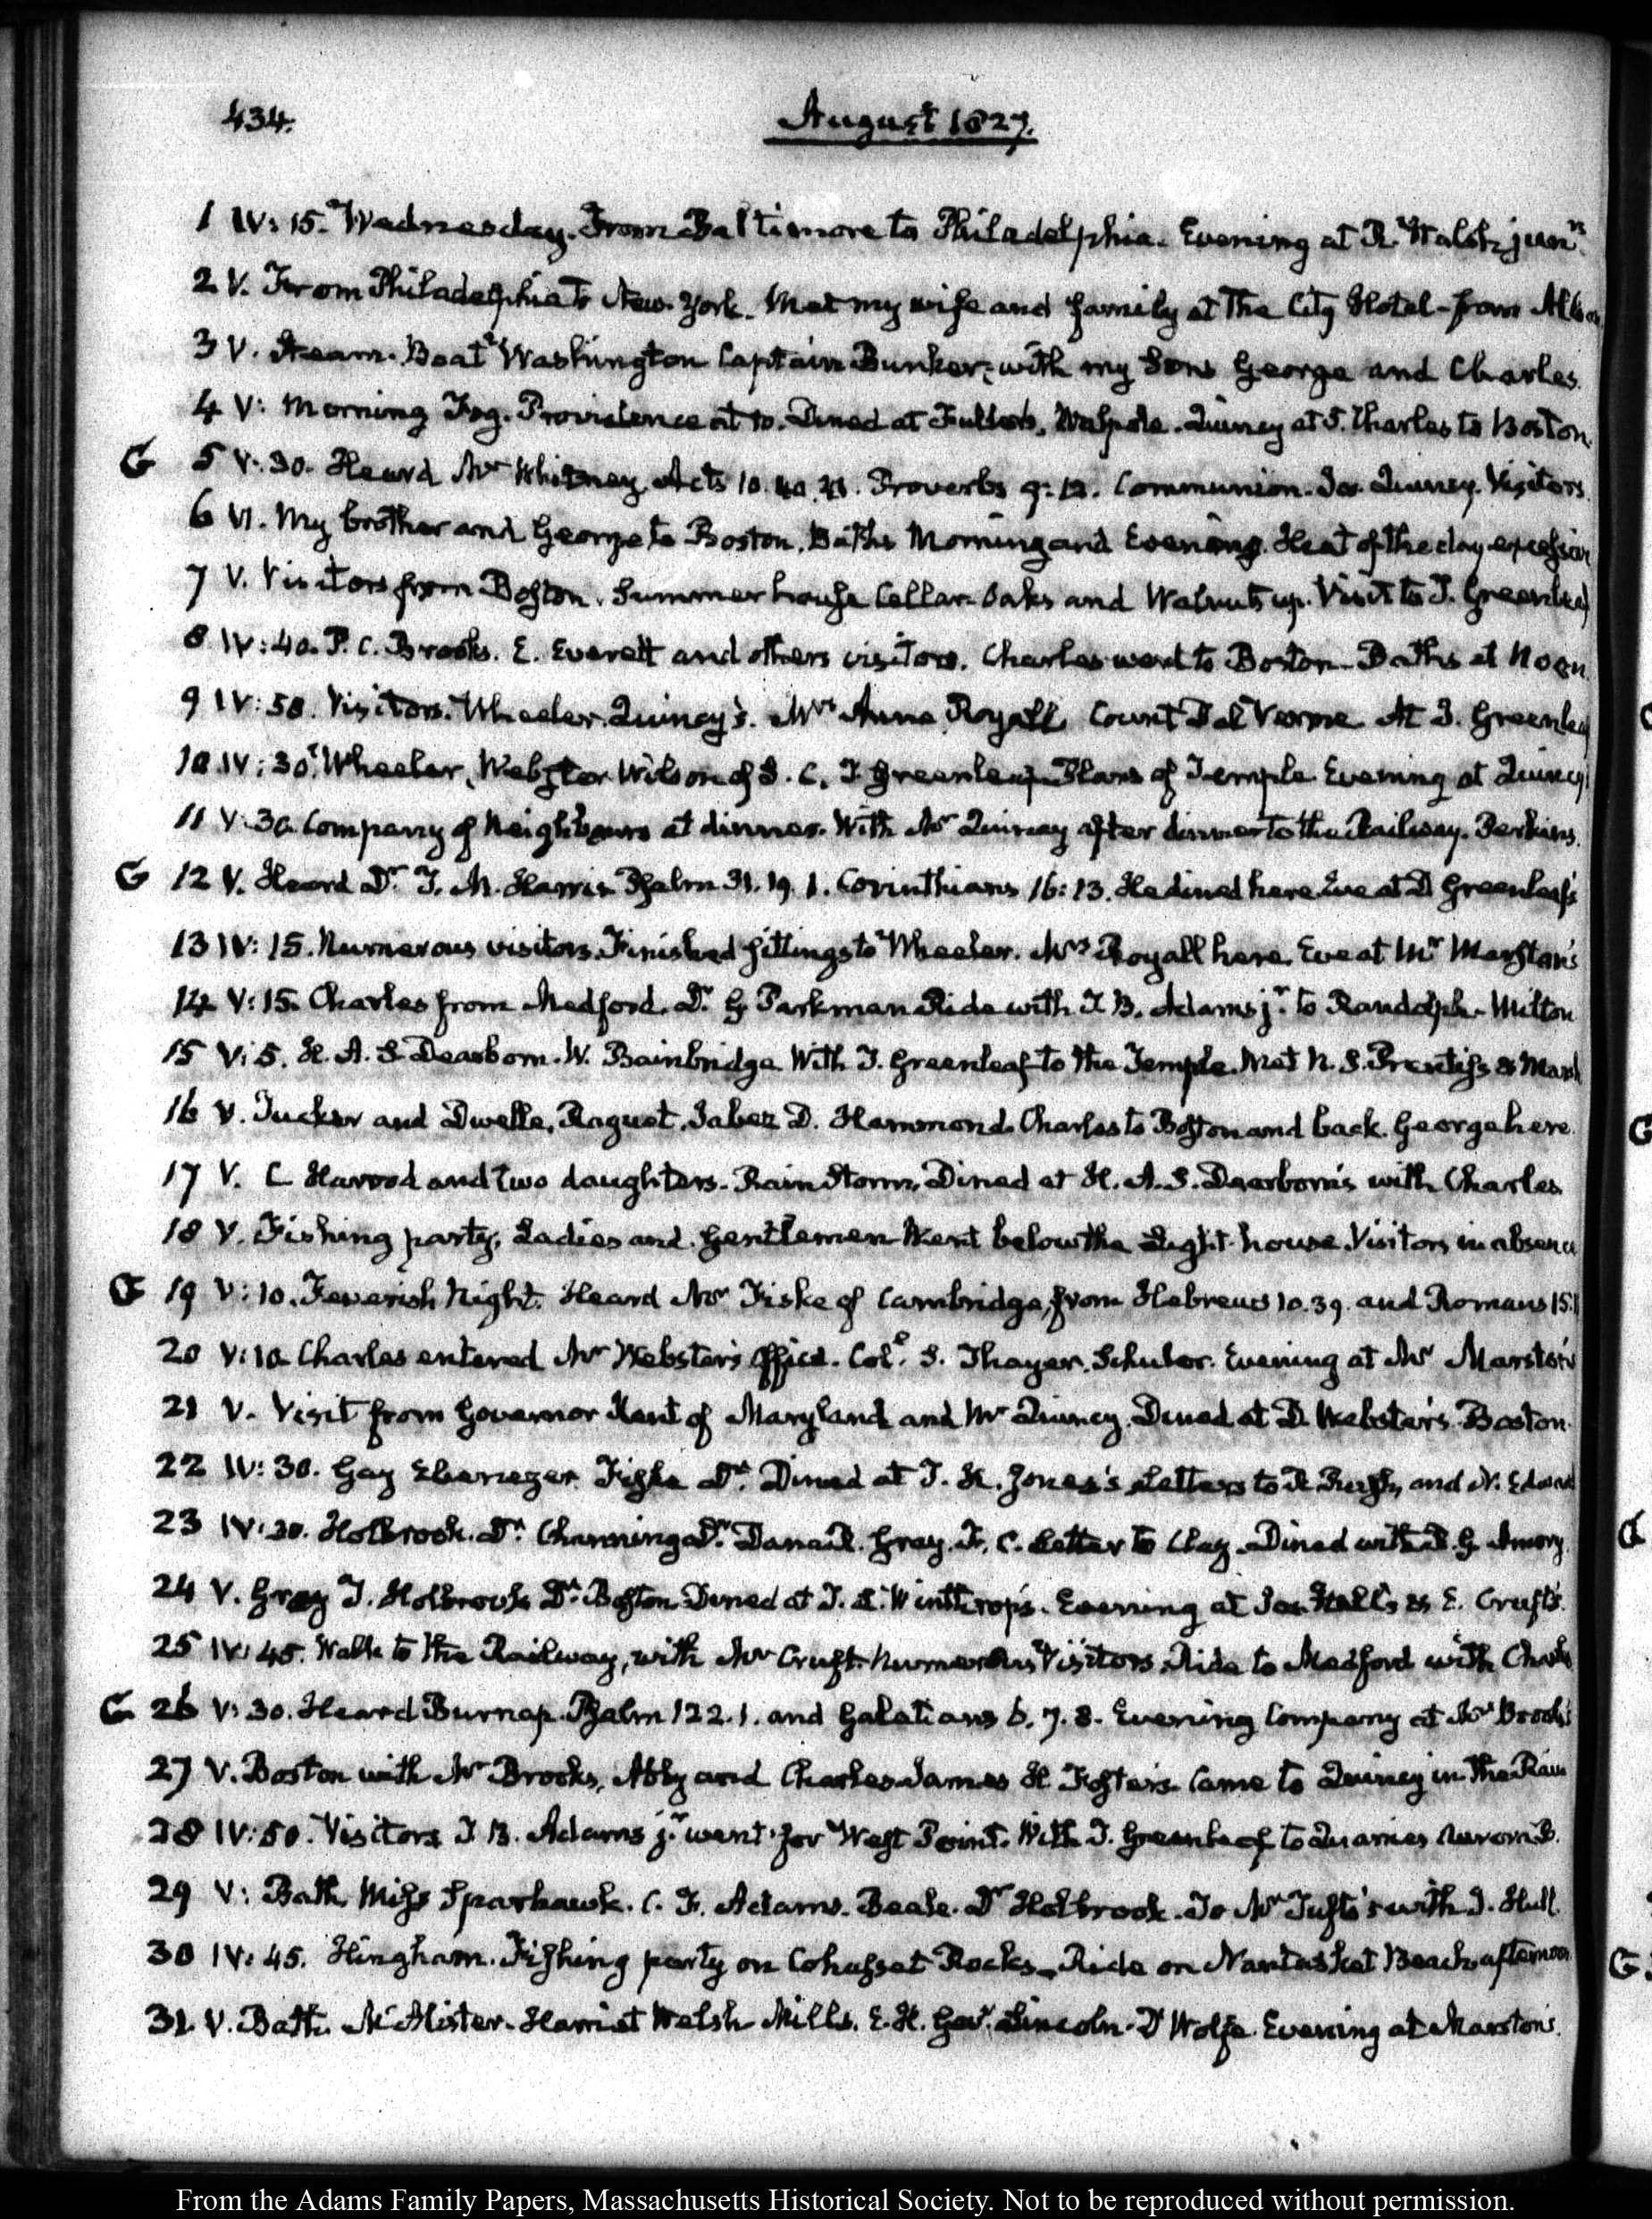 434.
August 1827.
1 IV: 15. Wednesday. From Baltimore to Philadelphia. Evening at R. Walsh junrs.
2 V. From Philadelphia to New-York. Met my wife and family at the City Hotel - from Alban
3 V. Steam-Boat Washington Captain Bunker; with my Sons George and Charles.
4 V: Morning Fog. Providence at 10. Dined at Fuller's, Walpole. Quincy at 5. Charles to Boston
G 5 V:30. Heard Mr Whitney. Acts 10. Proverbs 9:12. Communion. Jos. Quincy. Visitors
6 VI. My brother and George to Boston. Baths Morning and Evening. Heat of the day excessive
7 V. Visitors from Boston. Summer house Cellar. Oaks and Walnuts up. Visit to T. Greenleaf
8 IV:40. P. C. Brooks. E. Everett and others visitors. Charles went to Boston - Baths at Noon
9 IV:50. Visitors. Wheeler. Quincy's. Mrs Anne Royall, Count Dal Verme. At T. Greenleaf
10 IV:30. Wheeler, Webster. Wilson of S. C. T. Greenleaf. Plans of Temple. Evening at Quincy
11 V:30. Company of Neighbours at dinner. With Mr Quincy after dinner to the Railway. Perkins.
G 12 V. Heard Dr. T. M. Harris Psalm 31. 19. 1. Corinthians 16:13. He dined here. Eve at D Greenleaf's
13 IV: 15. Numerous visitors. Finished sittings to Wheeler. Mrs Royall here. Eve at Mr Marston's
14 V: 15. Charles from Medford. Dr. G Parkman. Ride with T. B. Adams jr. to Randolph - Milton
15 V: 5. H. A. S. Dearborn. W. Bainbridge. With T. Greenleaf to the Temple. Met N. S. Prentiss & Marsh
16 V. Tucker and Dwelle, Raguet, Jabez D. Hammond. Charles to Boston and back. George here.
17 V. and two daughters. Rain Storm. Dined at H. A. S. Dearborn's with Charles.
18 V. Fishing party. Ladies and Gentlemen. Went below the Light-house. Visitors in absence
G 19 V: 10. Feverish Night. Heard Mr Fiske of Cambridge, from Hebrews 10.39. and Romans 15.1
20 V:10. Charles entered Mr Webster's Office. Col. S. Thayer. Evening at Mr Marston's
21 V. Visit from Governor Kent of Maryland and Mr Quincy. Dined at D. Webster's. Boston.
22 IV: 30. Gay Ebenezer. Dr. Dined at T. K. Jones's. Letters to R. Rush, and N. Edward
23 IV:30. Holbrook. Dr. Channing. Dr. Dana. Gray. F. C. Letter to Clay. Dined with Amory.
24 V. Gray T. Holbrook Dr. Boston. Dined at T. L. Winthrop's. Evening at Jos. Hall's & E. Cruft's.
25 IV: 45. Walk to the Railway, with Mr Cruft. Numerous Visitors. Ride to Medford with Charles
G 26 V: 30. Heard Burnap. Psalm 122. 1. and Galatians 6. 7. 8. Evening Company at Mr Brooks's
27 V. Boston with Mr Brooks, Abby and Charles. James H. Foster's. Came to Quincy in the Rain
28 IV:50. Visitors T. B. Adams jr. went for West Point. With T. Greenleaf to Quarries.
29 V: Bath. Miss Sparhawk. C. F. Adams. Beale. Dr Holbrook. To Mr Tufts's with J. Hull
30 IV: 45. Hingham. Fishing party on Cohasset Rocks - Ride on Nantasket Beach afternoon
31 V. Bath. Harriet Welsh. Mills. E. H. Govr. Lincoln. D Wolfe. Evening at Marston's.
From the Adams Family Papers, Massachusetts Historical Society. Not to be reproduced without permission.